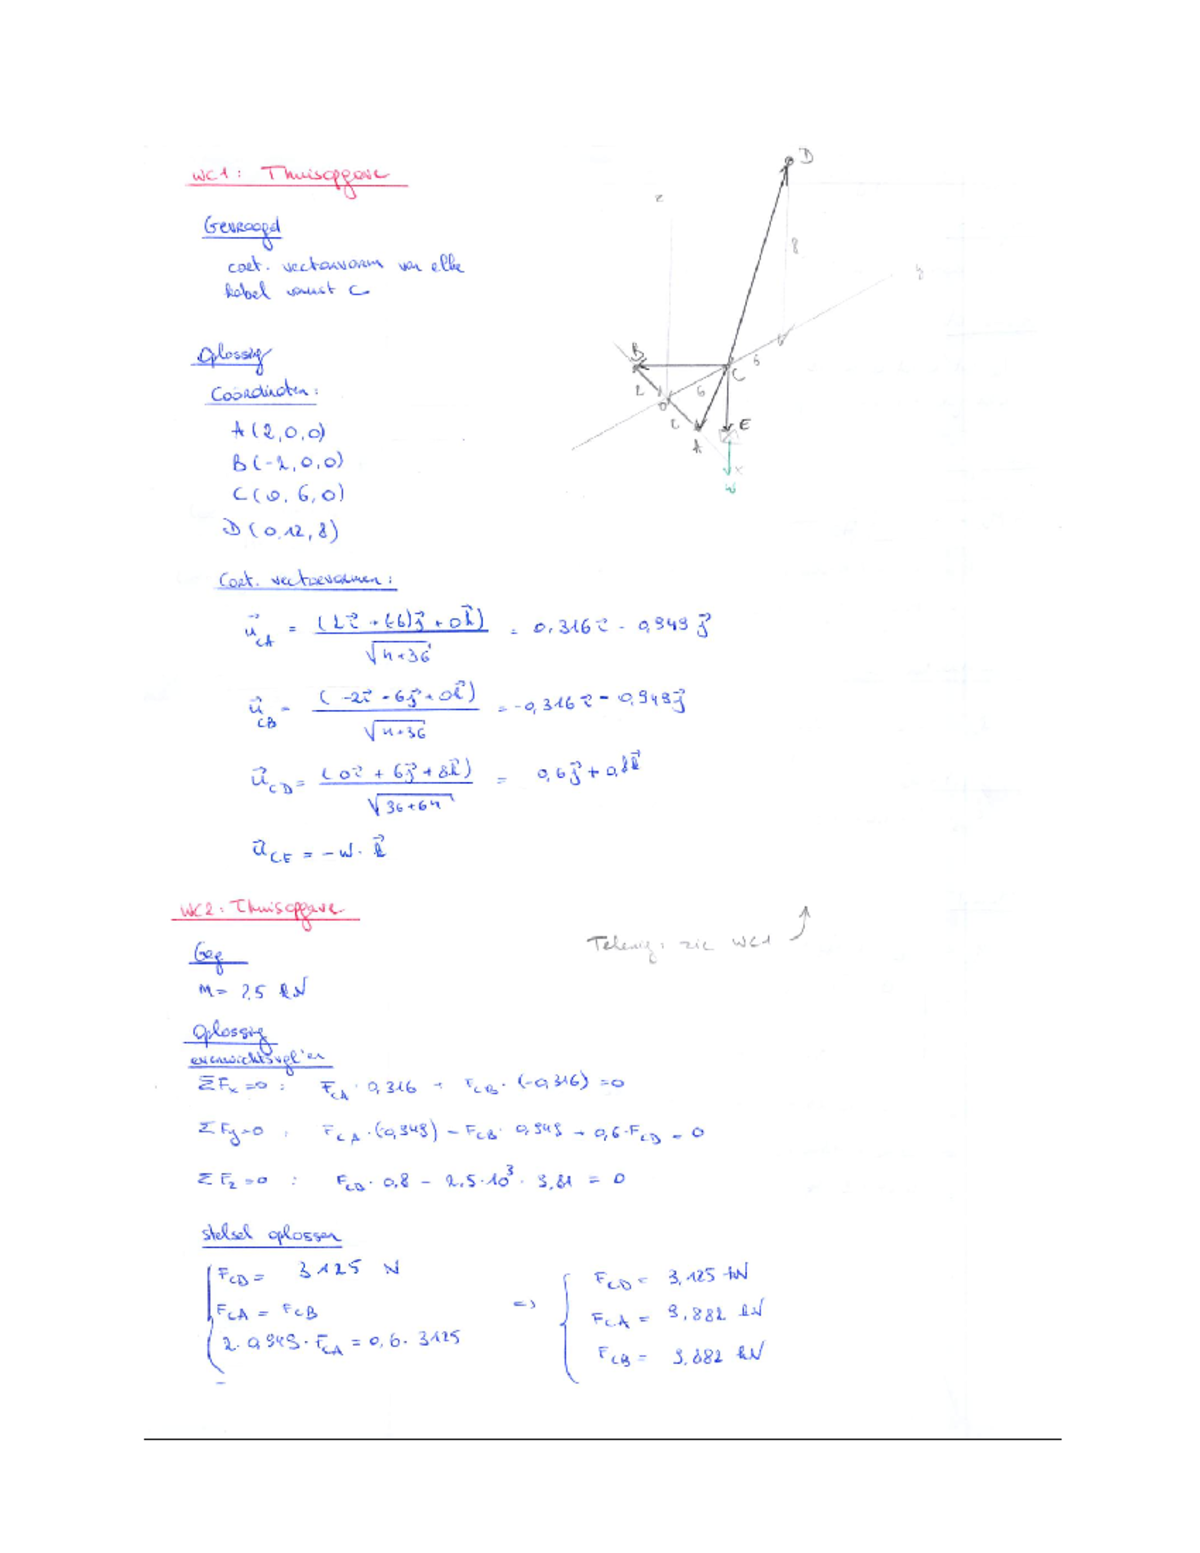 WC1: Thuisopgave
Gevraagd
cart. vectorvorm van elke
kabel vanuit C
Oplossing
Coördinaten:
A (2,0,0)
B (-2,0,0)
C (0, 6, 0)
D (0,12,8)
z
D
8
y
B
2
O
6
C
6
2
A
E
x
W
Cart. vectorvormen:
u⃗_CA = (2i⃗ + (-6)j⃗ + 0k⃗) / √4+36 = 0,316 i⃗ - 0,949 j⃗
u⃗_CB = (-2i⃗ - 6j⃗ + 0k⃗) / √4+36 = -0,316 i⃗ - 0,949 j⃗
u⃗_CD = (0i⃗ + 6j⃗ + 8k⃗) / √36+64 = 0,6 j⃗ + 0,8 k⃗
u⃗_CE = - W · k⃗
WC2: Thuisopgave
Tekening: zie WC1
Geg
M = 2,5 kN
Oplossing
evenwichtsvgl'en
ΣFx = 0 : F_CA · 0,316 + F_CB · (-0,316) = 0
ΣFy = 0 : F_CA · (-0,949) - F_CB · 0,949 + 0,6 · F_CD = 0
ΣFz = 0 : F_CD · 0,8 - 2,5 · 10³ · 9,81 = 0
stelsel oplossen
F_CD = 3125 N
F_CA = F_CB
2 · 0,949 · F_CA = 0,6 · 3125
=>
F_CD = 3,125 kN
F_CA = 9,882 kN
F_CB = 9,882 kN